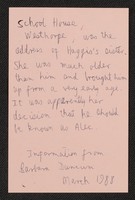 School House,
Westhorpe, was the
address of Happin's sister.
She was much older
than him and brought him
up from a very early age.
It was apparently her
decision that he should
be known as Alec
Information from
Barbara
March 1988